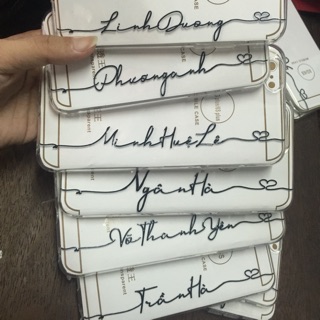 Linh Dương
Phương anh
Minh Huệ Lê
Ngân Hà
Võ Thanh Yên
Trần Hà